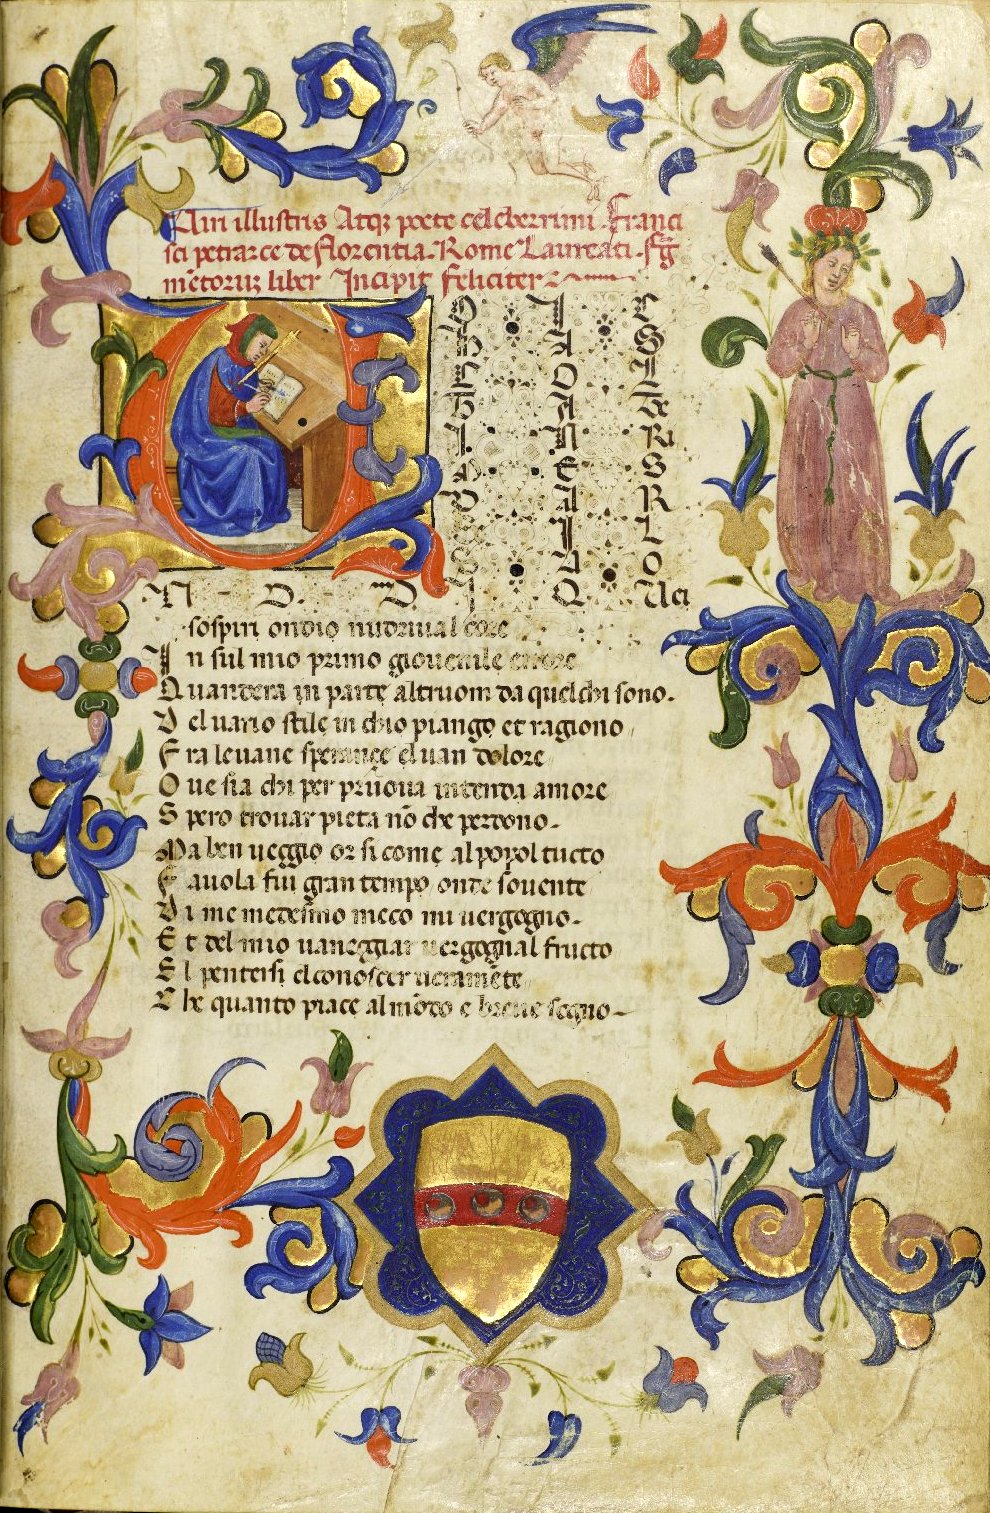 Viri illustris Atqꝫ poete celeberrimi. Franci
sci petrarce de florentia. Rome Laureati. Fᵃg
mētoruꝫ liber Incipit feliciter
V O I C
H A S
C O L
T A TE
I N RI
M E S
P A R
S I L
S V O
N O D I Q Uei
sospiri ondio nudriual core
In sul mio primo giouenile errore
Quandera in parte altruom da quel chi sono.
Del uario stile in chio piango et ragiono
Fra le uane speranze el uan dolore
Oue sia chi per pruoua intenda amore
Spero trouar pieta nō che perdono.
Ma ben ueggio or si come al popol tucto
Fauola fui gran tempo onde souente
Di me medesmo meco mi uergogno.
Et del mio uaneggiar uergognal fructo
El pentersi el conoscer ueramēte
Che quanto piace al mōdo e breue sogno.